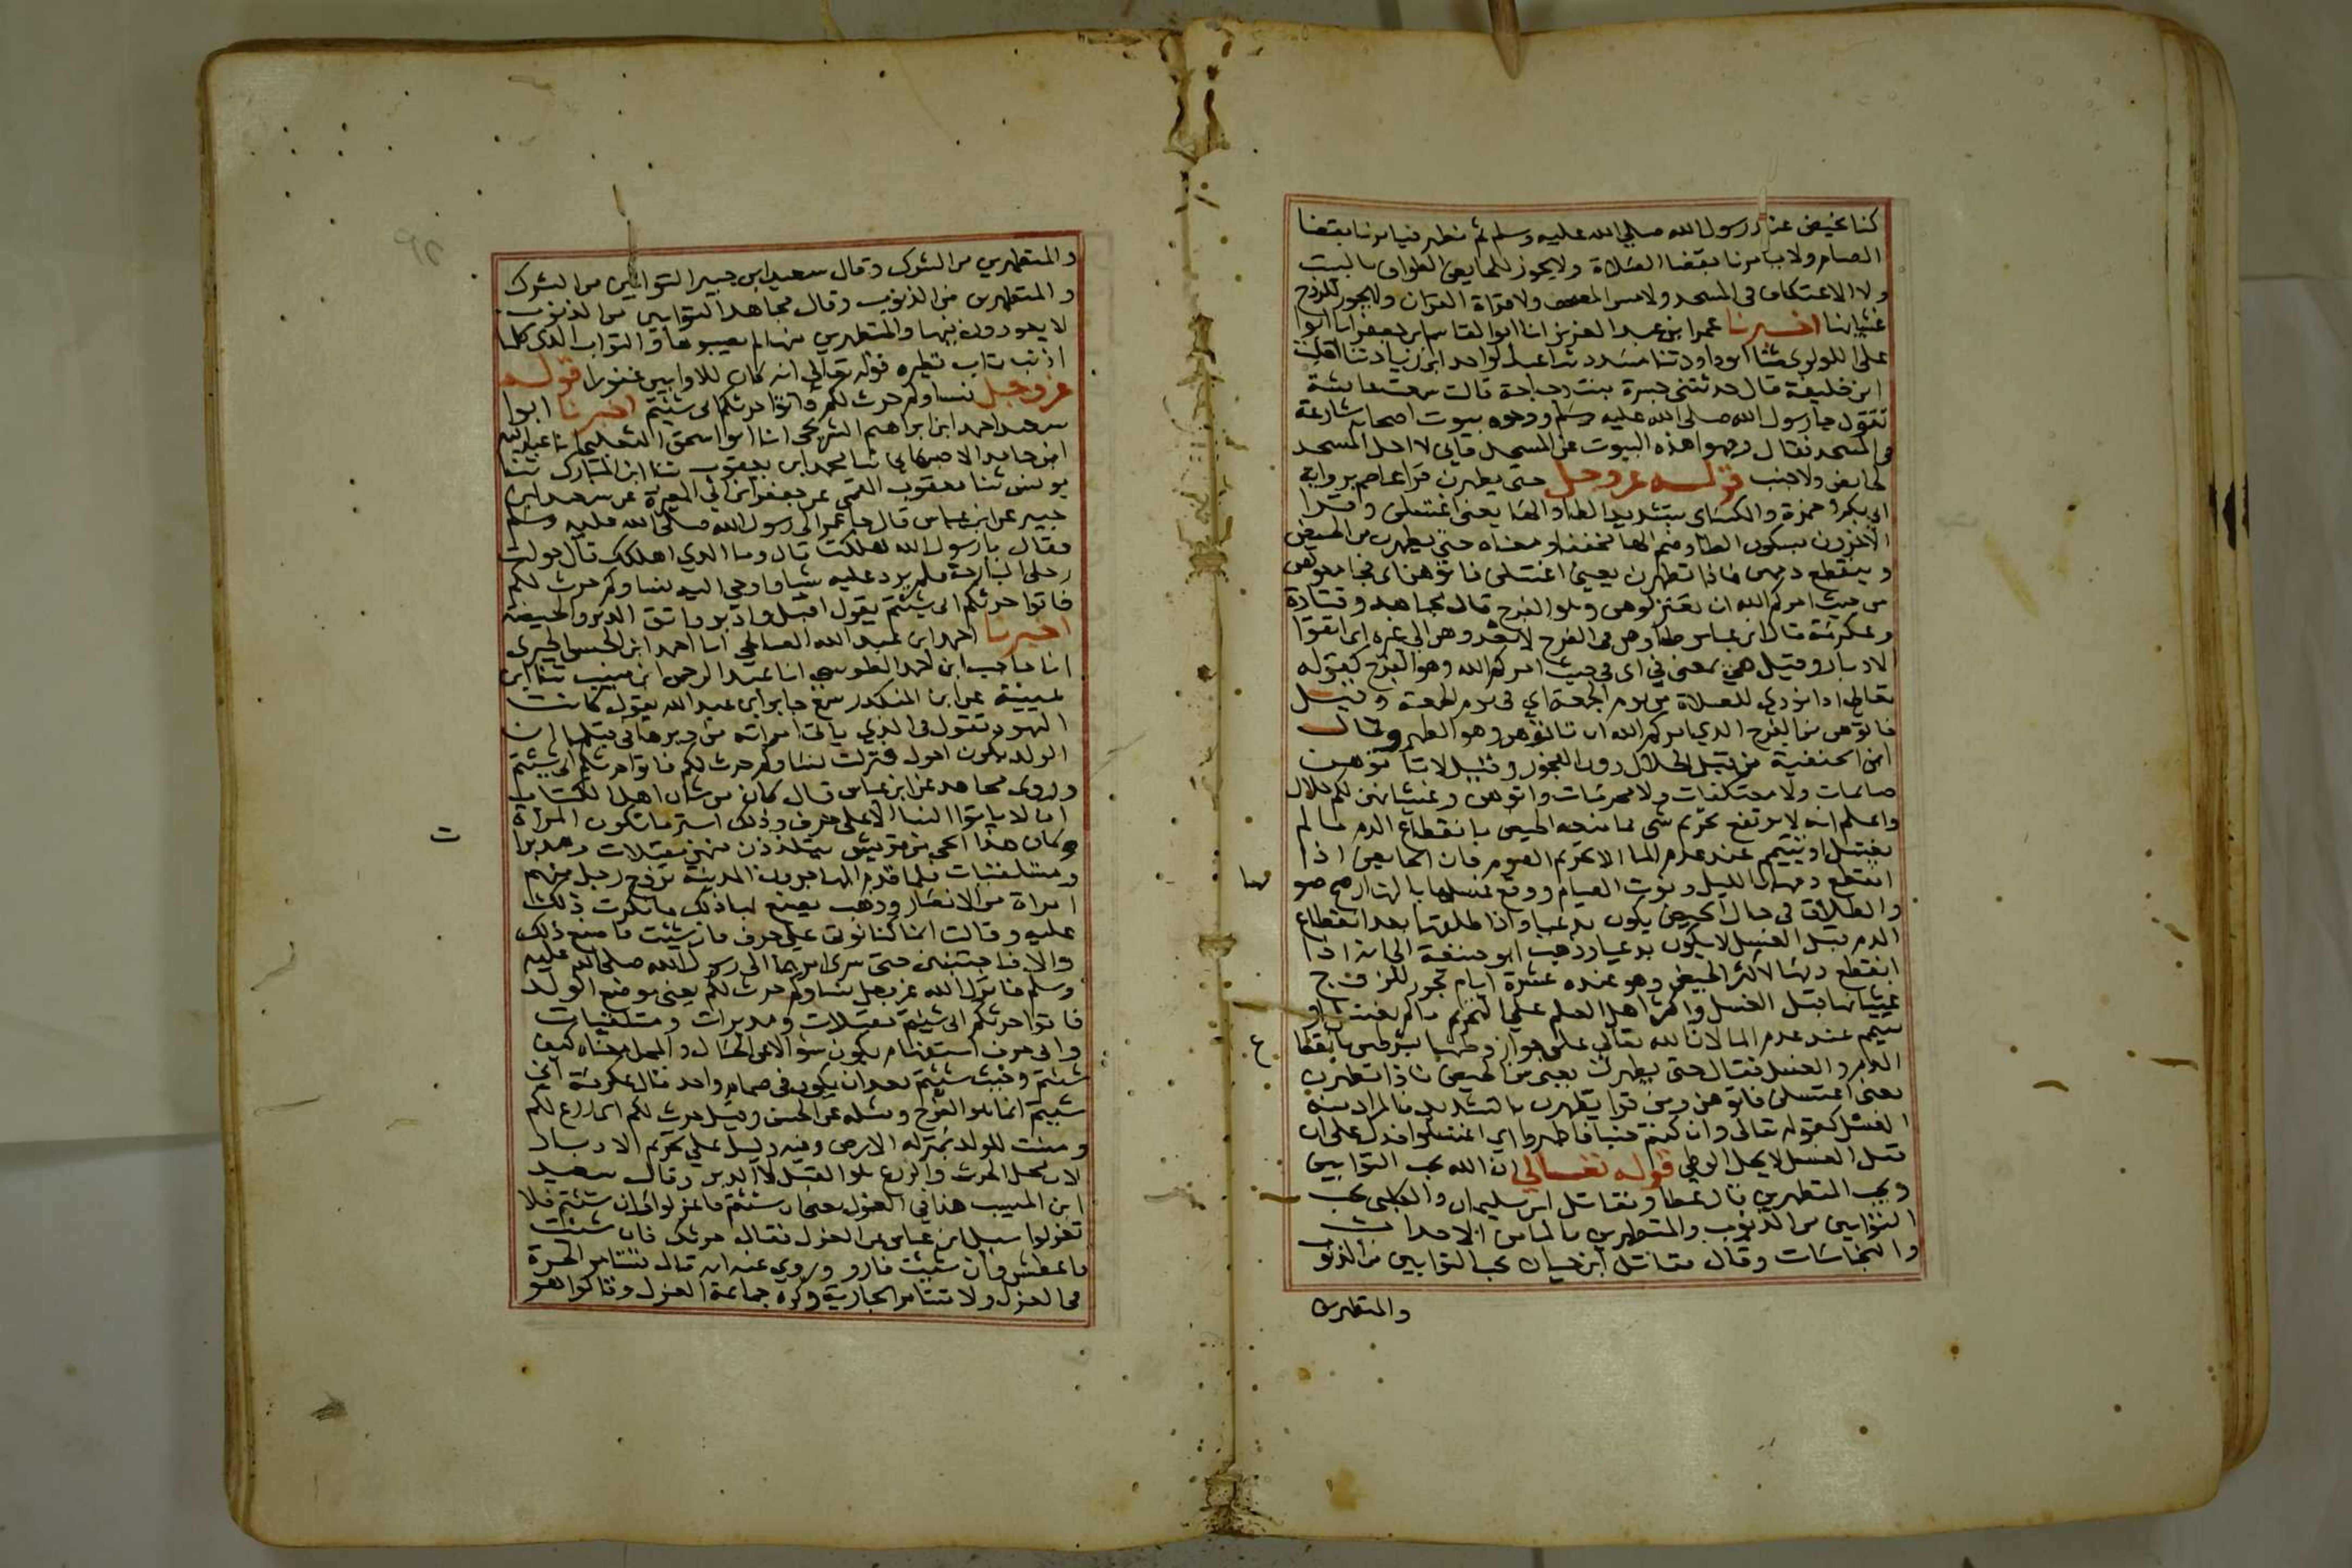 كنا نحيض عند رسول الله صلى الله عليه وسلم ثم نطهر فيامرنا بقضا
الصيام ولا يامرنا بقضا الصلاة ولا يجوز للحايض الطواف بالبيت
ولا الاعتكاف في المسجد ولا مس المصحف ولا قراة القران ولا يجوز للزوج
غشيانها اخبرنا عمر ابن عبد العزيز انا ابو القاسم ابن جعفر انا ابوا
على اللولوي ثنا ابو داود ثنا مسدد ثنا عبد الواحد ابن زياد ثنا افلت
ابن خليفة قال حدثتني جسرة بنت دجاجة قالت سمعت عايشة
تقول جا رسول الله صلى الله عليه وسلم ووجوه بيوت اصحابه شارعة
في المسجد فقال وجهوا هذه البيوت عن المسجد فاني لا احل المسجد
لحايض ولا جنب قوله عز وجل حتى يطهرن قرا عاصم برواية
ابي بكر وحمزة والكساى بتشديد الطا والها يعني اغتسلن وقرا
الاخرون بسكون الطا وضم الها مخففا ومعناه حتى يطهرن من الحيض
وينقطع دمهن فاذا تطهرن يعني اغتسلن فاتوهن اى فجامعوهن
من حيث امركم الله ان تعتزلوهن وهو الفرج قال مجاهد وقتادة
وعكرمة قال ابن عباس طاوهن في الفرج لا تعدوهن الى غيره اى اتقوا
الادبار وقيل من بمعنى في اى في حيث امركم الله وهو الفرج كقوله
تعالى اذا نودي للصلاة من يوم الجمعة اي في يوم الجمعة وقيل
فاتوهن من الفرج الذي امركم الله ان تاتوهن وهو الطهر وقال
ابن الحنفية من قبل الحلال دون الفجور وقيل لا تاتوهن
صايمات ولا معتكفات ولا محرمات واتوهن وغشيانهن لكم حلال
واعلم انه لا يرتفع تحريم شي مما منعه الحيض بانقطاع الدم ما لم
يغتسل او تتيمم عند عدم الما الا تحريم الصوم فان الحايض اذا
انقطع دمها بالليل ونوت الصيام ووقع غسلها بالنهار صح صو
مها
والطلاق في حال الحيض يكون بدعيا واذا طلقها بعد انقطاع
الدم قبل الغسل لا يكون بدعيا وذهب ابو حنيفة الى انه اذا
انقطع دمها لاكثر الحيض وهو عنده عشرة ايام يجوز للزوج
غشيانها قبل الغسل واكثر اهل العلم على التحريم ما لم يغتسل او
تتيمم عند عدم الما لان الله تعالى علق جواز وطيها بشرطين بانقطا
ع
الدم والغسل فقال حتى يطهرن يعني من الحيض فاذا تطهرن
يعني اغتسلن فاتوهن ومن قرا يطهرن بالتشديد فالمراد منه
الغسل كقوله تعالى وان كنتم جنبا فاطهروا اي اغتسلوا فدل على ان
قبل الغسل لا يحل الوطي قوله تعالي ان الله يحب التوابين
ويحب المتطهرين قال عطا ومقاتل ابن سليمان والكلبي يحب
التوابين من الذنوب والمتطهرين بالما من الاحداث
والنجاسات وقال مقاتل ابن حيان يحب التوابين من الذنوب
والمتطهرين
والمتطهرين من الشرك وقال سعيد ابن جبير التوابين من الشرك
والمتطهرين من الذنوب وقال مجاهد التوابين من الذنوب
لا يعودون فيها والمتطهرين منها لم يصيبوها والتواب الذي كلما
اذنب تاب نظيره قوله تعالى انه كان للاوابين غفورا قوله
عز وجل نساوكم حرث لكم فاتوا حرثكم انى شيتم اخبرنا ابوا
سعيد احمد ابن ابراهيم الشريحي انا ابو اسحق الثعلبي انا عبد الله
ابن حامد الاصبهاني ثنا محمد ابن يعقوب ثنا ابن المبارك ثنا
يونس ثنا يعقوب القمي عن جعفر ابن ابي المغيرة عن سعيد ابن
جبير عن ابن عباس قال جا عمر الى رسول الله صلى الله عليه وسلم
فقال يا رسول الله هلكت قال وما الذي اهلكك قال حولت
رحلي البارحة فلم يرد عليه شيا فاوحي اليه نساوكم حرث لكم
فاتوا حرثكم انى شيتم يقول اقبل وادبر واتق الدبر والحيضة
اخبرنا احمد ابن عبد الله الصالحي انا احمد ابن الحسن الحيري
انا حاجب ابن احمد الطوسي انا عبد الرحمن ابن منيب ثنا ابن
عيينة عن ابن المنكدر سمع جابر ابن عبد الله يقول كانت
اليهود تقول في الذي ياتى امراته من دبرها في قبلها ان
الولد يكون احول فنزلت نساوكم حرث لكم فاتوا حرثكم انى شيتم
وروى مجاهد عن ابن عباس قال كان من شان اهل الكتاب
ان لا ياتوا النسا الا على حرف وذلك استر ما تكون المراة
وكان هذا الحي من قريش يتلذذون منهن مقبلات ومدبرا
ت
ومستلقيات فلما قدم المهاجرون المدينة تزوج رجل منهم
امراة من الانصار وذهب يصنع بها ذلك فانكرت ذلك
عليه وقالت انا كنا نوتى على حرف فان شيت فاصنع ذلك
والا فاجتنبني حتى سرى امرهما الى رسول الله صلى الله عليه
وسلم فانزل الله عز وجل نساوكم حرث لكم يعني موضع الولد
فاتوا حرثكم انى شيتم مقبلات ومدبرات ومستلقيات
وانى حرف استفهام يكون سؤالا عن الحال والمحل معناه كيف
شيتم وحيث شيتم بعد ان يكون في صمام واحد قال عكرمة انى
شيتم انما هو الفرج ومثله عن الحسن وقيل حرث لكم اى مزرع لكم
ومنبت للولد بمنزلة الارض وفيه دليل على تحريم الادبار
لان محل الحرث والزرع هو القبل لا الدبر وقال سعيد
ابن المسيب هذا في العزل يعني ان شيتم فاعزلوا وان شيتم فلا
تعزلوا سيل ابن عباس عن العزل فقال حرثك فان شيت
فاعطش وان شيت فارو وروي عنه انه قال تستامر الحرة
في العزل ولا تستامر الجارية وكره جماعة العزل وقالوا هو